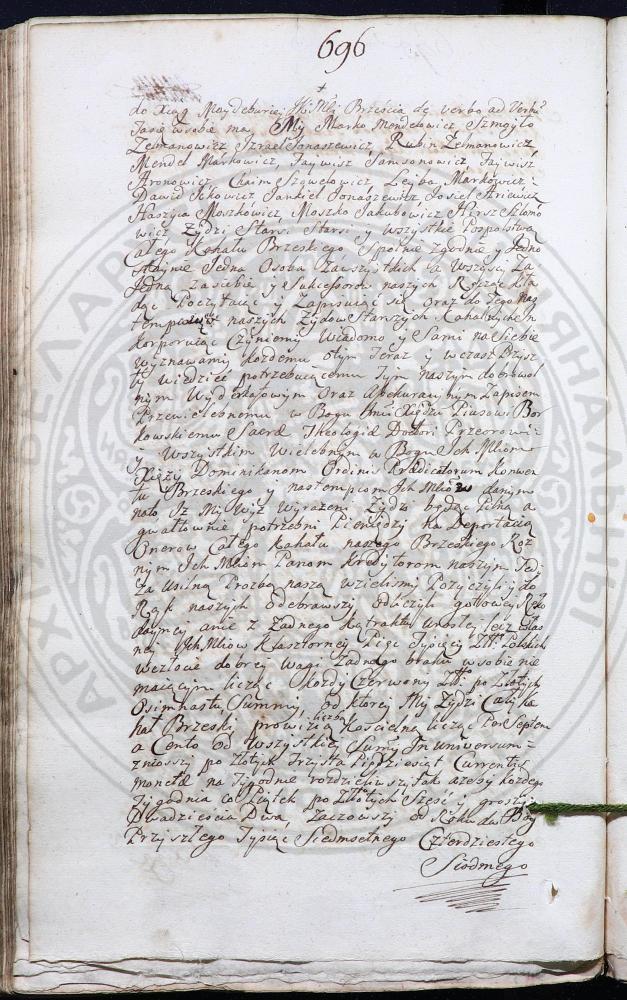 696
do Xiąg Maydeburiej JK Mśi Brzescia de verbo ad Verbu
Tak w sobie ma My Marko Mendelowicz Szmoyło
Zelmanowicz Izrael Jonaszewicz, Rubin Zelmanowicz,
Mendel Markowicz, Faywisz Samsonowicz Faywisz
Aronowicz Chaim Szowelowicz, Leyba Markowicz
Dawid Ickowicz Jankiel Jonaszewicz Josiel Ariewicz
Haszyia Moszkowicz, Moszko Jakubowicz Hirsz Szlomo
wicz Zydzi Starsi Starsi y wszystkie Pospolstwo
Całego Kahału Brzeskiego Spolnie zgodnie y Jedno
staynie Jedna Osoba za wszystkich a Wszyscy Za
Jedną za siebie y Sukcessorow naszych Ręcząc kła
dąc Poczytaiąc y Zapisuiąc się oraz do tego nas
tempuiących naszych Zydow Starszych Kahalnych In
korporuiąc Czyniemy Wiadomo y Sami na Siebie
wyznawamy kożdemu o tym teraz y w czasy Przysz
ły wiedzieć potrzebuiącemu Tym naszym dobrowol
nym Wyderkafowym oraz Assekuracyinym Zapisem
Przewielebnemu w Bogu Xiędzu Piusowi Bor
kowskiemu Sacræ Theologiæ Doctori Przeorowi
y Wszystkim Wielebnym w Bogu Ich Mliom
Xięży Dominikanom Ordinis Prædicatorum Konwen
tu Brzeskiego y nastempcom Ich Mliow danym
na to Iz My Wyż wyrażeni Zydzi będąc pilną a
gwałtownie potrzebni Pieniędzy na Deportacią
Onerow Całego Kahału naszego Brzeskiego Roz
nym Ich Mliom Panom Kredytorom naszym Tedy
za Usilną Prozbą naszą wzielismy Pozyczyli y do
Rąk naszych Odebrawszy odliczyli gotowey Rękо
dayney a nie z żadnego kątraktu urosłey lecz własz
ney Ich Mliow Klasztorney Pięc Tysięcy Złł: Polskich
we złocie dobrey wagi zadnego braku w sobie nie
maiącym licząc kożdy Czerwony Złł: po Złotych
Osimnastu Summy, Od ktorey My Zydzi Cały Ka
hał Brzeski prowizią liczbą Kościelną licząc Por Septem
a Cento Od Wszystkiey Sumy In universum
zniosszy po złotych Trzysta Pięćdziesiąt Currentis
monetæ na Tygodnie rozdzieliwszy tak ażeby kożdego
Tygodnia co Piątek po Złotych Szesc y groszy
Dwadziescia Dwa, Zaczowszy od Roku da Bog
Przyszłego Tysiąc Siedmsetnego Czterdziestego
Siodmego